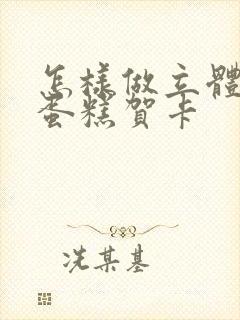 怎樣做立體
蛋糕賀卡
冼某基